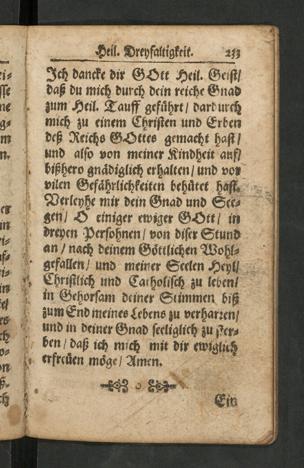 Heil. Dreyfaltigkeit. 233
Ich dancke dir GOtt Heil. Geist/
daß du mich durch dein reiche Gnad
zum Heil. Tauff geführt/ dardurch
mich zu einem Christen und Erben
deß Reichs GOttes gemacht hast/
und also von meiner Kindheit auf/
bißhero gnädiglich erhalten/ und vor
vilen Gefährlichkeiten behütet hast.
Verleyhe mir dein Gnad und See-
gen/ O einiger ewiger GOtt/ in
dreyen Persohnen/ von diser Stund
an/ nach deinem Göttlichen Wohl-
gefallen/ und meiner Seelen Heyl/
Christlich und Catholisch zu leben/
in Gehorsam deiner Stimmen biß
zum End meines Lebens zu verharren/
und in deiner Gnad seeliglich zu ster-
ben/ daß ich mich mit dir ewiglich
erfreüen möge/ Amen.
Ein